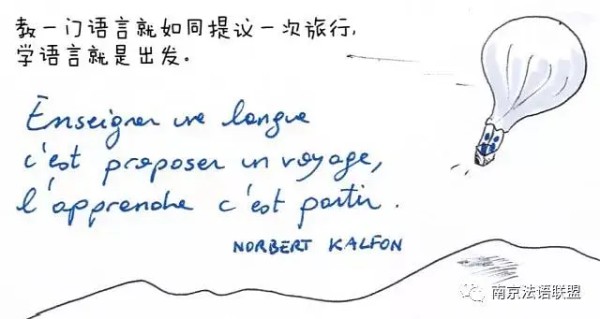 教一门语言就如同提议一次旅行,
学语言就是出发。
Enseigner une langue
c'est proposer un voyage,
l'apprendre c'est partir.
NORBERT KALFON
南京法语联盟